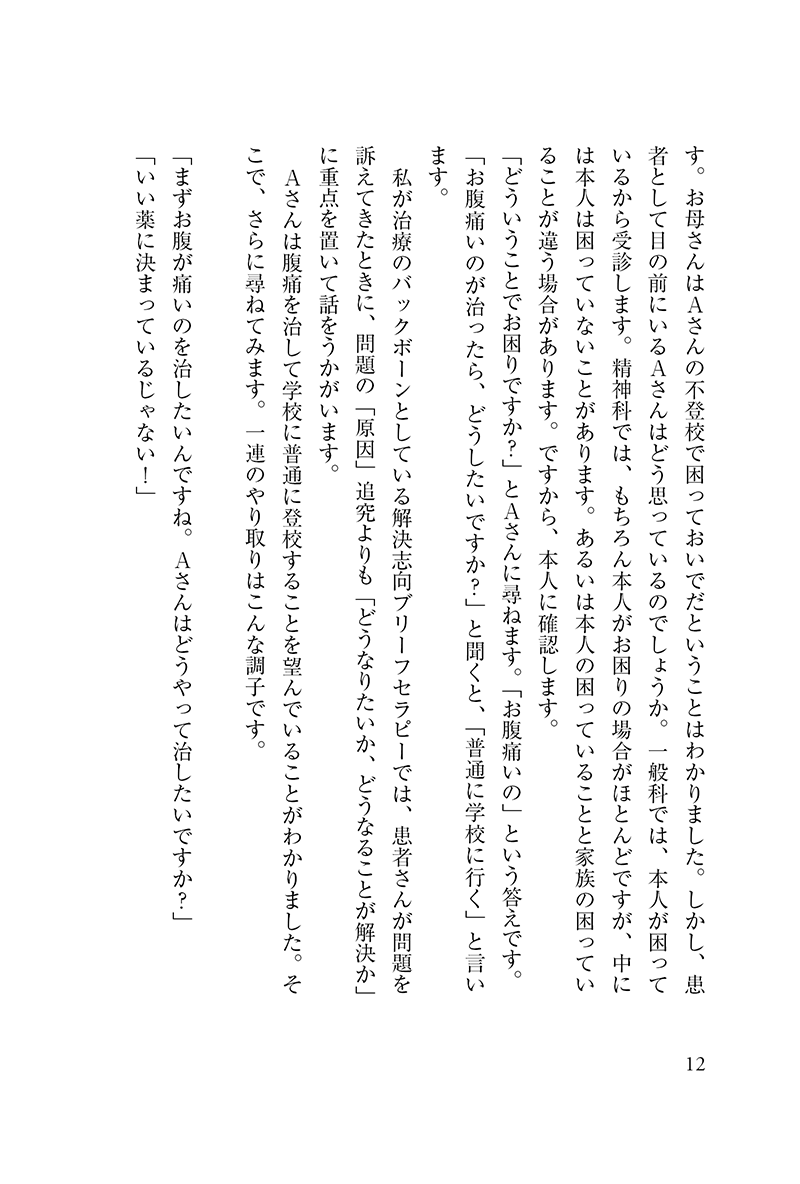 す。お母さんはAさんの不登校で困っておいでだということはわかりました。しかし、患
者として目の前にいるAさんはどう思っているのでしょうか。一般科では、本人が困って
いるから受診します。精神科では、もちろん本人がお困りの場合がほとんどですが、中に
は本人は困っていないことがあります。あるいは本人の困っていることと家族の困ってい
ることが違う場合があります。ですから、本人に確認します。
「どういうことでお困りですか?」とAさんに尋ねます。「お腹痛いの」という答えです。
「お腹痛いのが治ったら、どうしたいですか?」と聞くと、「普通に学校に行く」と言い
ます。
私が治療のバックボーンとしている解決志向ブリーフセラピーでは、患者さんが問題を
訴えてきたときに、問題の「原因」追究よりも「どうなりたいか、どうなることが解決か」
に重点を置いて話をうかがいます。
Aさんは腹痛を治して学校に普通に登校することを望んでいることがわかりました。そ
こで、さらに尋ねてみます。一連のやり取りはこんな調子です。
「まずお腹が痛いのを治したいんですね。Aさんはどうやって治したいですか?」
「いい薬に決まっているじゃない!」
12